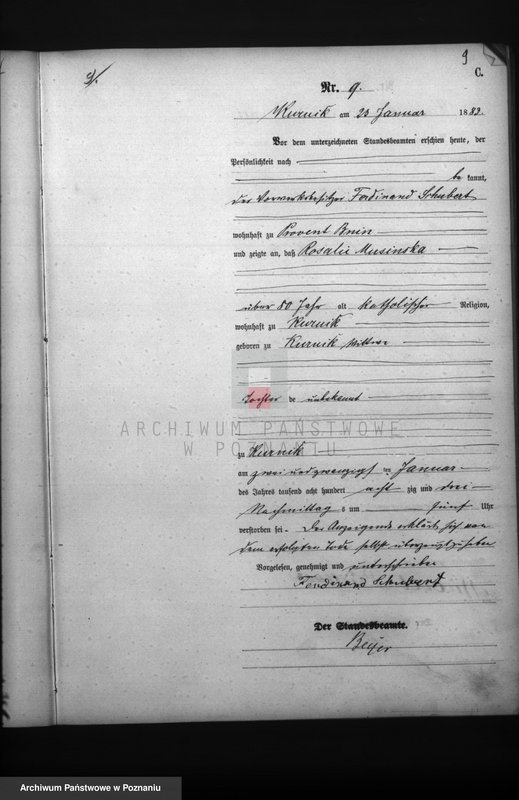 9
C.
Nr. 9.
Kurnik am 23 Januar 1883.
Vor dem unterzeichneten Standesbeamten erschien heute, der
Persönlichkeit nach
be kannt,
der Vorwerksbesitzer Ferdinand Schubert
wohnhaft zu Provent Bnin
und zeigte an, daß Rosalie Musinska
über 80 Jahr alt, katholischer Religion,
wohnhaft zu Kurnik
geboren zu Kurnik Wittwe
Tochter de unbekannt
ARCHIWUM PAŃSTWOWE
W POZNANIU
zu Kurnik
am zwei und zwanzigst ten Januar
des Jahres tausend acht hundert acht zig und drei
Nachmittag s um fünf Uhr
verstorben sei. Der Anzeigende erklärte sich von
dem erfolgten Tode selbst überzeugt zu haben
Vorgelesen, genehmigt und unterschrieben
Ferdinand Schubert
Der Standesbeamte.
Beyer
Archiwum Państwowe w Poznaniu